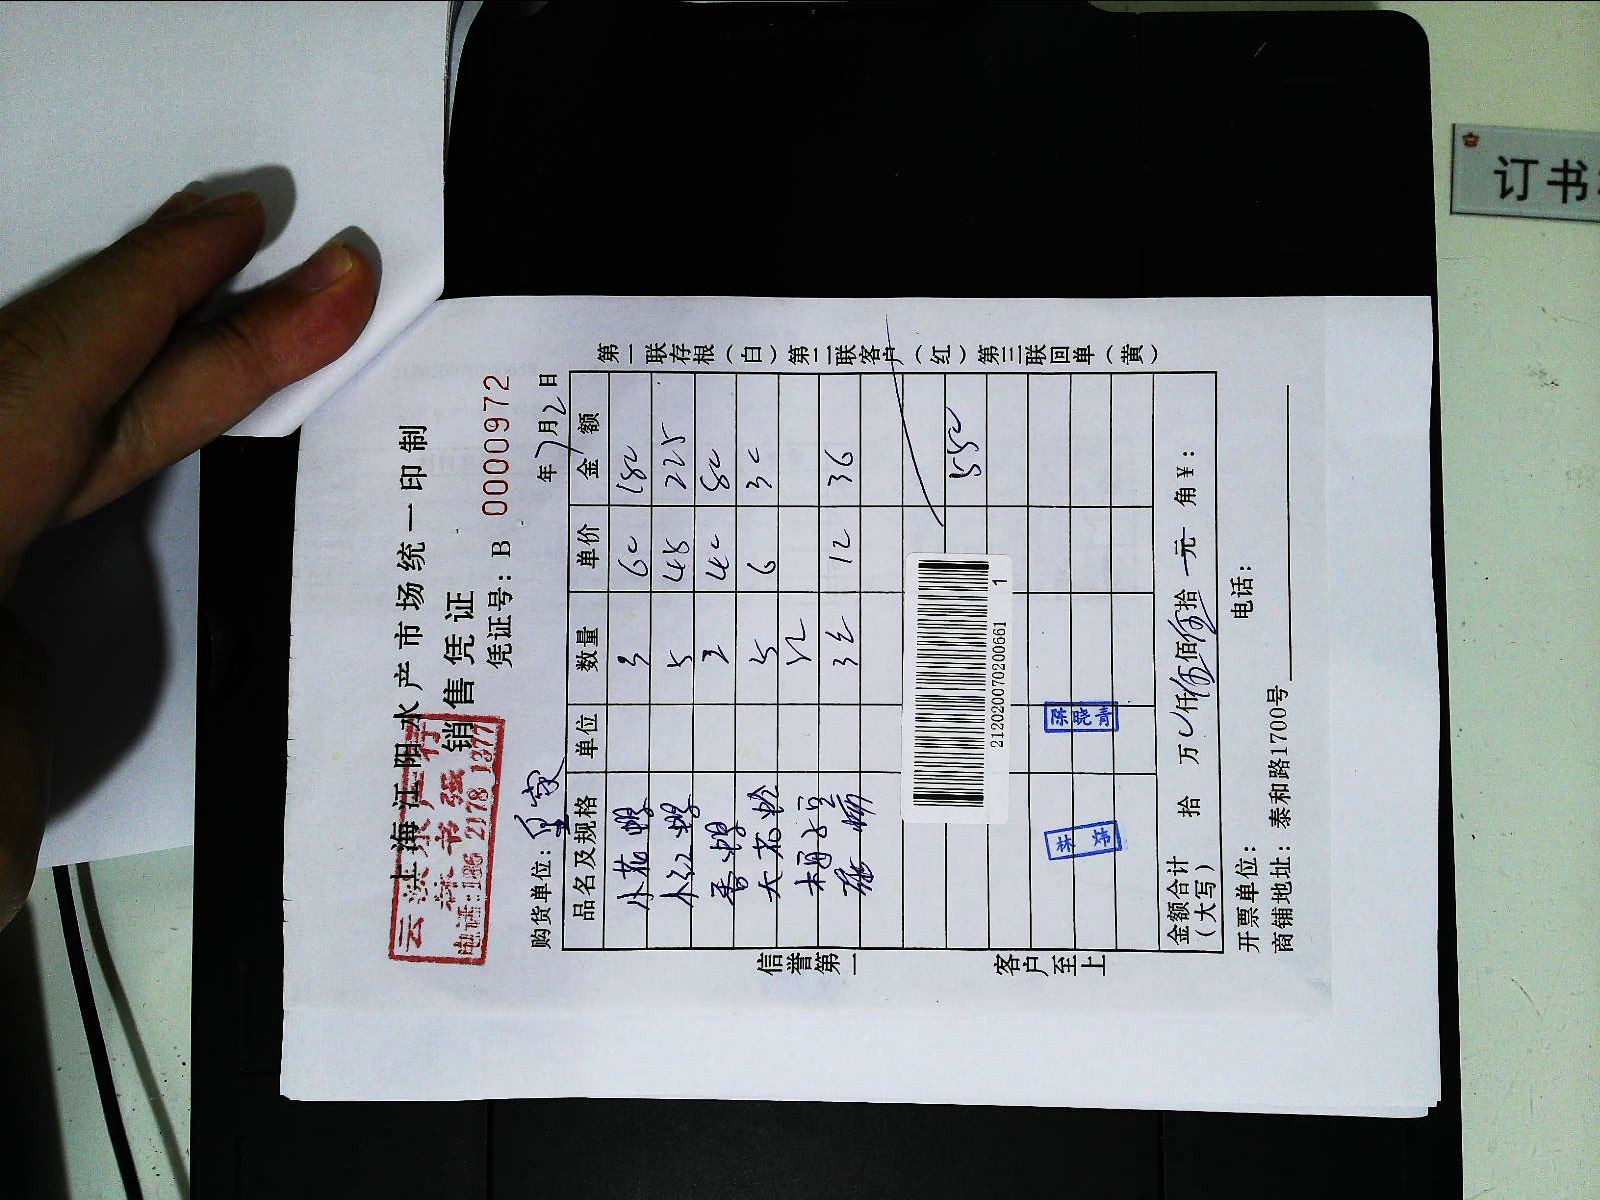 上海江阳水产市场统一印制
销售凭证
凭证号：B 0000972
电话:136 2178 1377
购货单位： 年7月2日
品名及规格 单位 数量 单价 金额
小花螺 3 60 180
小红螺 5 45 225
香螺 2 40 80
大花蛤 5 6 30
3 12 36
550
212020070200661 1
陈晓青
林
金额合计（大写） 拾 万 仟伍佰伍拾 元 角¥：
开票单位： 电话：
商铺地址：泰和路1700号
第一联存根（白）第二联客户（红）第三联回单（黄）
信誉第一 客户至上
订书